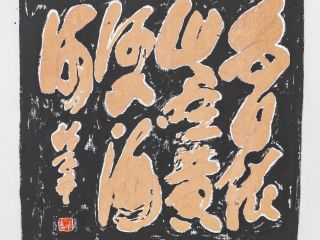 白日依
山尽黄
河入海
流